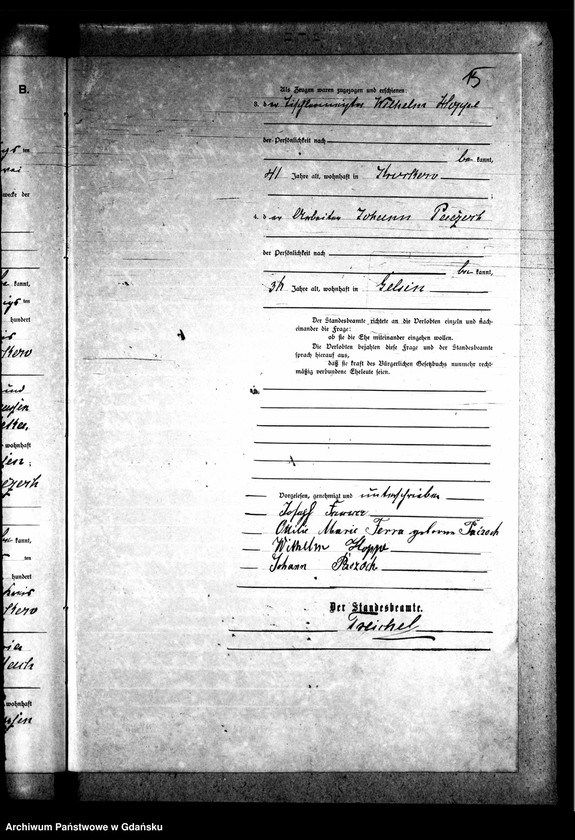 B.
15
Als Zeugen waren zugezogen und erschienen:
3. der Tischlermeister Wilhelm Hoppe
der Persönlichkeit nach
be kannt,
41 Jahre alt, wohnhaft in
4. der Arbeiter Johann
der Persönlichkeit nach
be kannt,
34 Jahre alt, wohnhaft in Gelsin
Der Standesbeamte richtete an die Verlobten einzeln und nach-
einander die Frage:
ob sie die Ehe miteinander eingehen wollen.
Die Verlobten bejahten diese Frage und der Standesbeamte
sprach hierauf aus,
daß sie kraft des Bürgerlichen Gesetzbuchs nunmehr recht-
mäßig verbundene Eheleute seien.
Vorgelesen, genehmigt und unterschrieben
Josef
Ottilie Marie Terra geborene
Wilhelm Hoppe
Johann
Der Standesbeamte.
Treichel
kannt,
ten
hundert
und
wohnhaft
kannt,
ten
hundert
wohnhaft
Archiwum Państwowe w Gdańsku